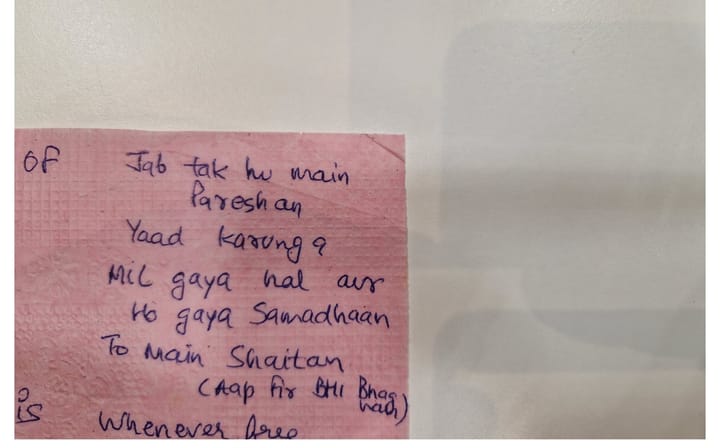 of Jab tak hu main
Pareshan
Yaad karunga
Mil gaya hal aur
Ho gaya Samadhaan
To Main Shaitan
(Aap fir BHI Bhag
wan)
is Whenever Free